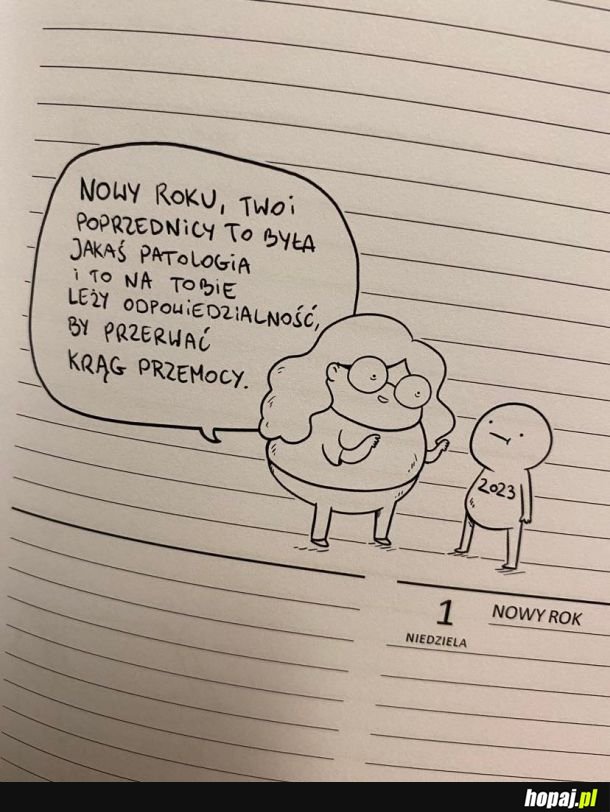 NOWY ROKU, TWOI
POPRZEDNICY TO BYŁA
JAKAŚ PATOLOGIA
I TO NA TOBIE
LEŻY ODPOWIEDZIALNOŚĆ,
BY PRZERWAĆ
KRĄG PRZEMOCY.
2023
1 NOWY ROK
NIEDZIELA
hopaj.pl